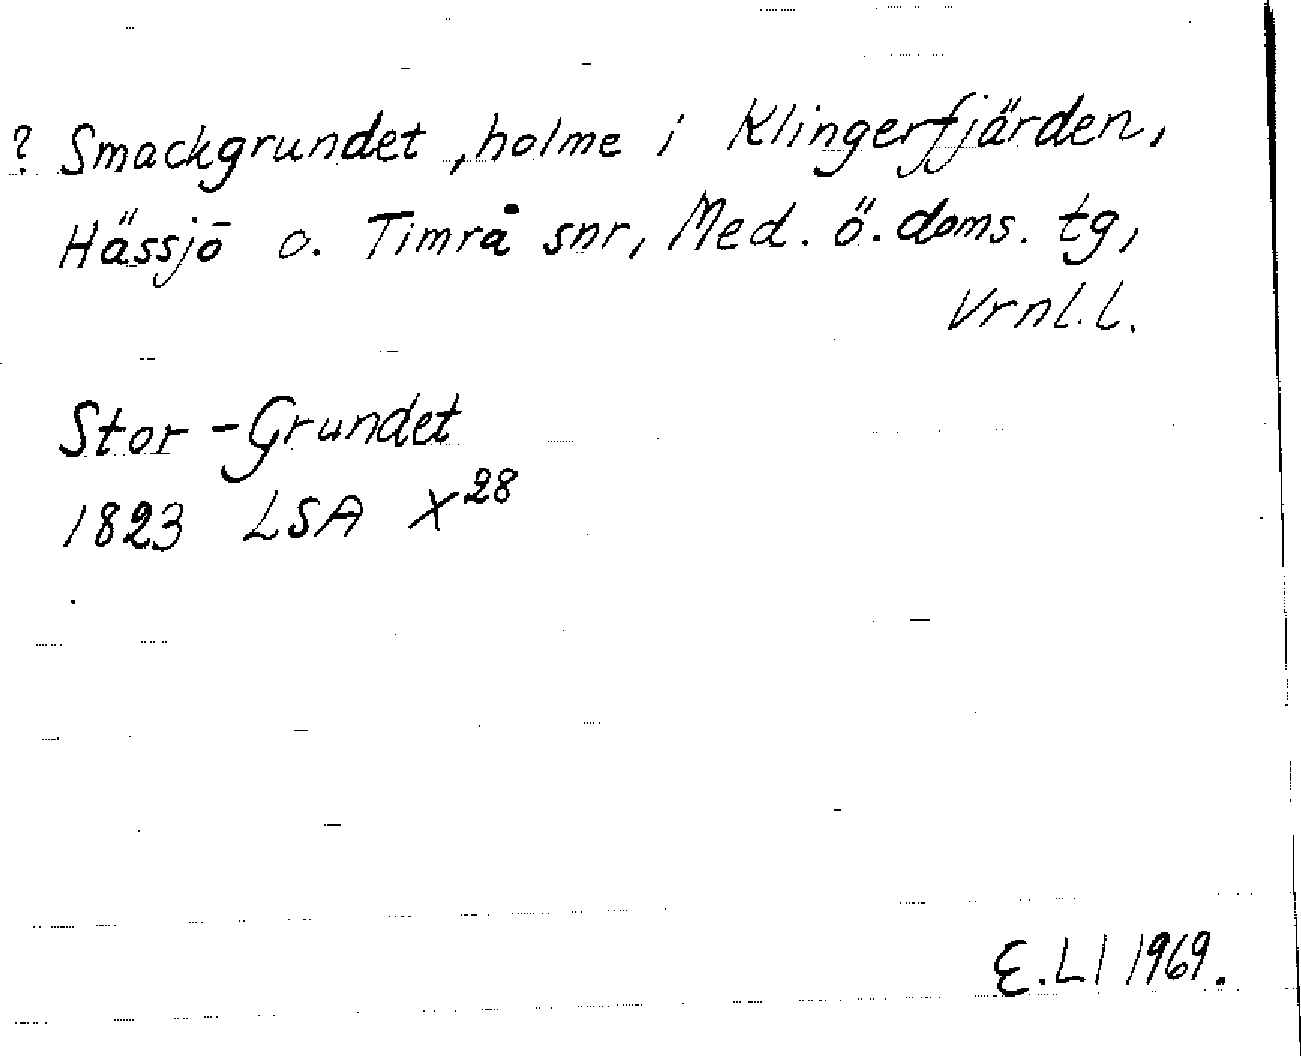 ? Smackgrundet, holme i Klingerfjärden,
Hässjö o. Timrå snr, Med. ö. doms. tg,
Vrnl. l.
Stor-Grundet
1823 LSA X²⁸
E. Ll 1969.